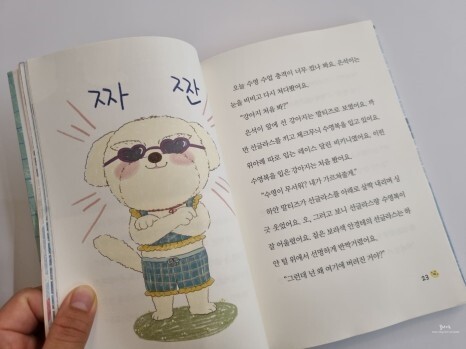 짜 잔
오늘 수영 수업 충격이 너무 컸나 봐요. 은서이는
눈을 비비고 다시 쳐다봤어요.
"강아지 처음 봐?"
은서이 앞에 선 강아지는 말티즈로 보였어요. 까
만 선글라스를 끼고 체크무늬 수영복을 입고 있어요.
위아래 따로 입는 레이스 달린 비키니였어요. 이런
수영복을 입은 강아지는 처음 봤어요.
"수영이 무서워? 내가 가르쳐줄게."
하얀 말티즈가 선글라스를 아래로 살짝 내리며 싱
긋 웃었어요. 오, 그러고 보니 선글라스랑 수영복이
잘 어울렸어요. 짙은 보라색 안경테의 선글라스는 하
얀 털 위에서 선명하게 반짝거렸어요.
"그런데 넌 왜 여기에 버려진 거야?"
23